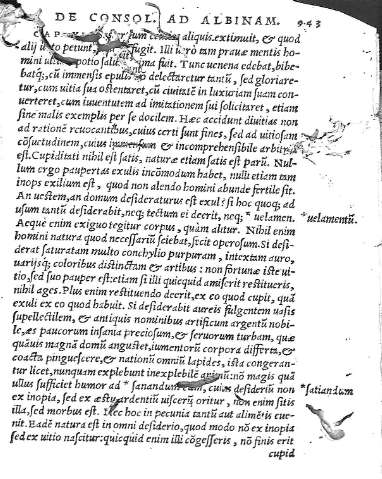 DE CONSOL. AD ALBINAM. 943
censeri aliquis extimuit, & quod
alij uoto petunt, fugit. Illi uerò tam prauæ mentis homini ultima potio salu ma fuit. Tunc uenena edebat, bibebatq́;
cũ immensis epulis nõ delectaretur tantũ, sed gloriaretur,
cum uitia sua ostentaret, cũ ciuitatẽ in luxuriam suam conuerteret,
cum iuuentutem ad imitationem sui solicitaret, etiam
sine malis exemplis per se docilem. Hæc accidunt diuitias non
ad rationẽ reuocantibus, cuius certi sunt fines, sed ad uitiosam
cõsuetudinem, cuius & incomprehensibile arbitriũ
est. Cupiditati nihil est satis, naturæ etiam satis est parũ. Nullum
ergo paupertas exulis incõmodum habet, nulli etiam tam
inops exilium est, quod non alendo homini abunde fertile sit.
An uestem, an domum desideraturus est exul? si hoc quoq; ad
usum tantũ desiderabit, neq; tectum ei decrit, neq; * uelamen. *uelamentũ.
Aequè enim exiguo tegitur corpus, quàm alitur. Nihil enim
homini natura quod necessariũ sciebat, fecit operosum. Si desiderat
saturatam multo conchylio purpuram, intextam auro,
uarijsq; coloribus distinctam & artibus: non fortunæ iste uitio,
sed suo pauper est: etiam si illi quicquid amiserit restitueris,
nihil ages. Plus enim restituendo decrit, ex eo quod cupit, quã
exuli ex eo quod habuit. Si desiderabit aureis fulgentem uasis
supellectilem, & antiquis nominibus artificum argentũ nobile,
æs paucorum insania preciosum, & seruorum turbam, quæ
quàuis magnã domũ angustet, iumentorũ corpora differta, &
coacta pinguescere, & nationũ omniũ lapides, ista congerantur
licet, nunquam explebunt inexplebilẽ animũ: nõ magis quã
ullus sufficiet humor ad * sanandum eum, cuius desideriũ non *satiandum
ex inopia, sed ex æstu ardentiũ uiscerũ oritur, non enim sitis
illa, sed morbus est. Nec hoc in pecunia tantũ aut alimẽtis euenit.
Eadẽ natura est in omni desiderio, quod modo nõ ex inopia
sed ex uitio nascitur: quicquid enim illi cõgesseris, nõ finis erit
cupid